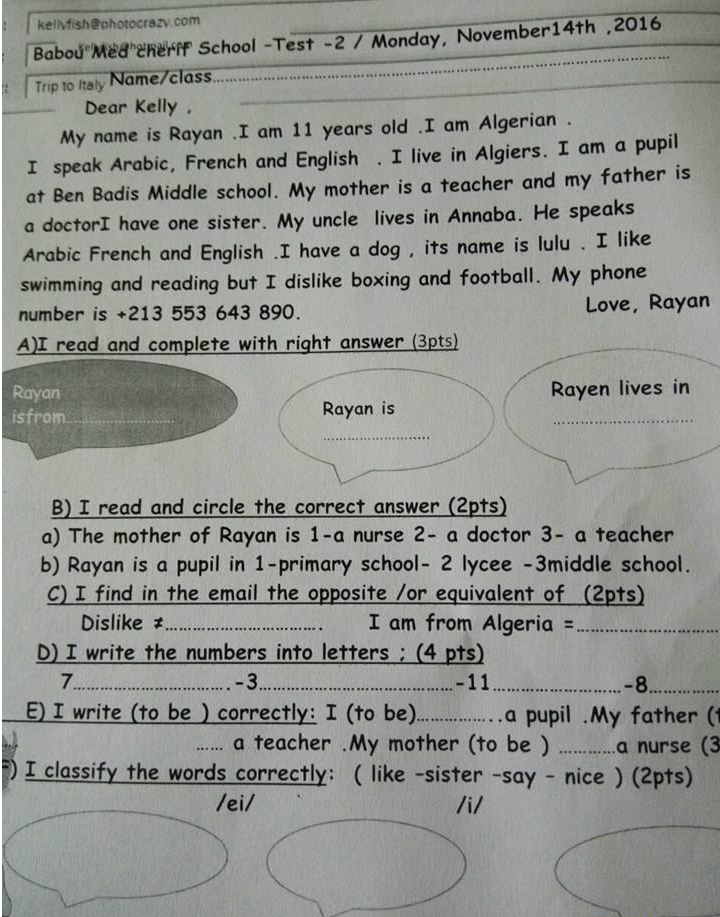 kellyfish@photocrazy.com
Babou Med cherif School -Test -2 / Monday, November14th ,2016
Trip to Italy Name/class................................
Dear Kelly ,
My name is Rayan .I am 11 years old .I am Algerian .
I speak Arabic, French and English . I live in Algiers. I am a pupil
at Ben Badis Middle school. My mother is a teacher and my father is
a doctorI have one sister. My uncle lives in Annaba. He speaks
Arabic French and English .I have a dog , its name is lulu . I like
swimming and reading but I dislike boxing and football. My phone
number is +213 553 643 890. Love, Rayan
A)I read and complete with right answer (3pts)
Rayan
isfrom......................
Rayan is
......................
Rayen lives in
......................
B) I read and circle the correct answer (2pts)
a) The mother of Rayan is 1-a nurse 2- a doctor 3- a teacher
b) Rayan is a pupil in 1-primary school- 2 lycee -3middle school.
C) I find in the email the opposite /or equivalent of (2pts)
Dislike ≠................................. I am from Algeria =......................
D) I write the numbers into letters ; (4 pts)
7................................-3................................-11......................-8............
E) I write (to be ) correctly: I (to be)................a pupil .My father (t
...... a teacher .My mother (to be ) ............a nurse (3
) I classify the words correctly: ( like -sister -say - nice ) (2pts)
/ei/ /i/